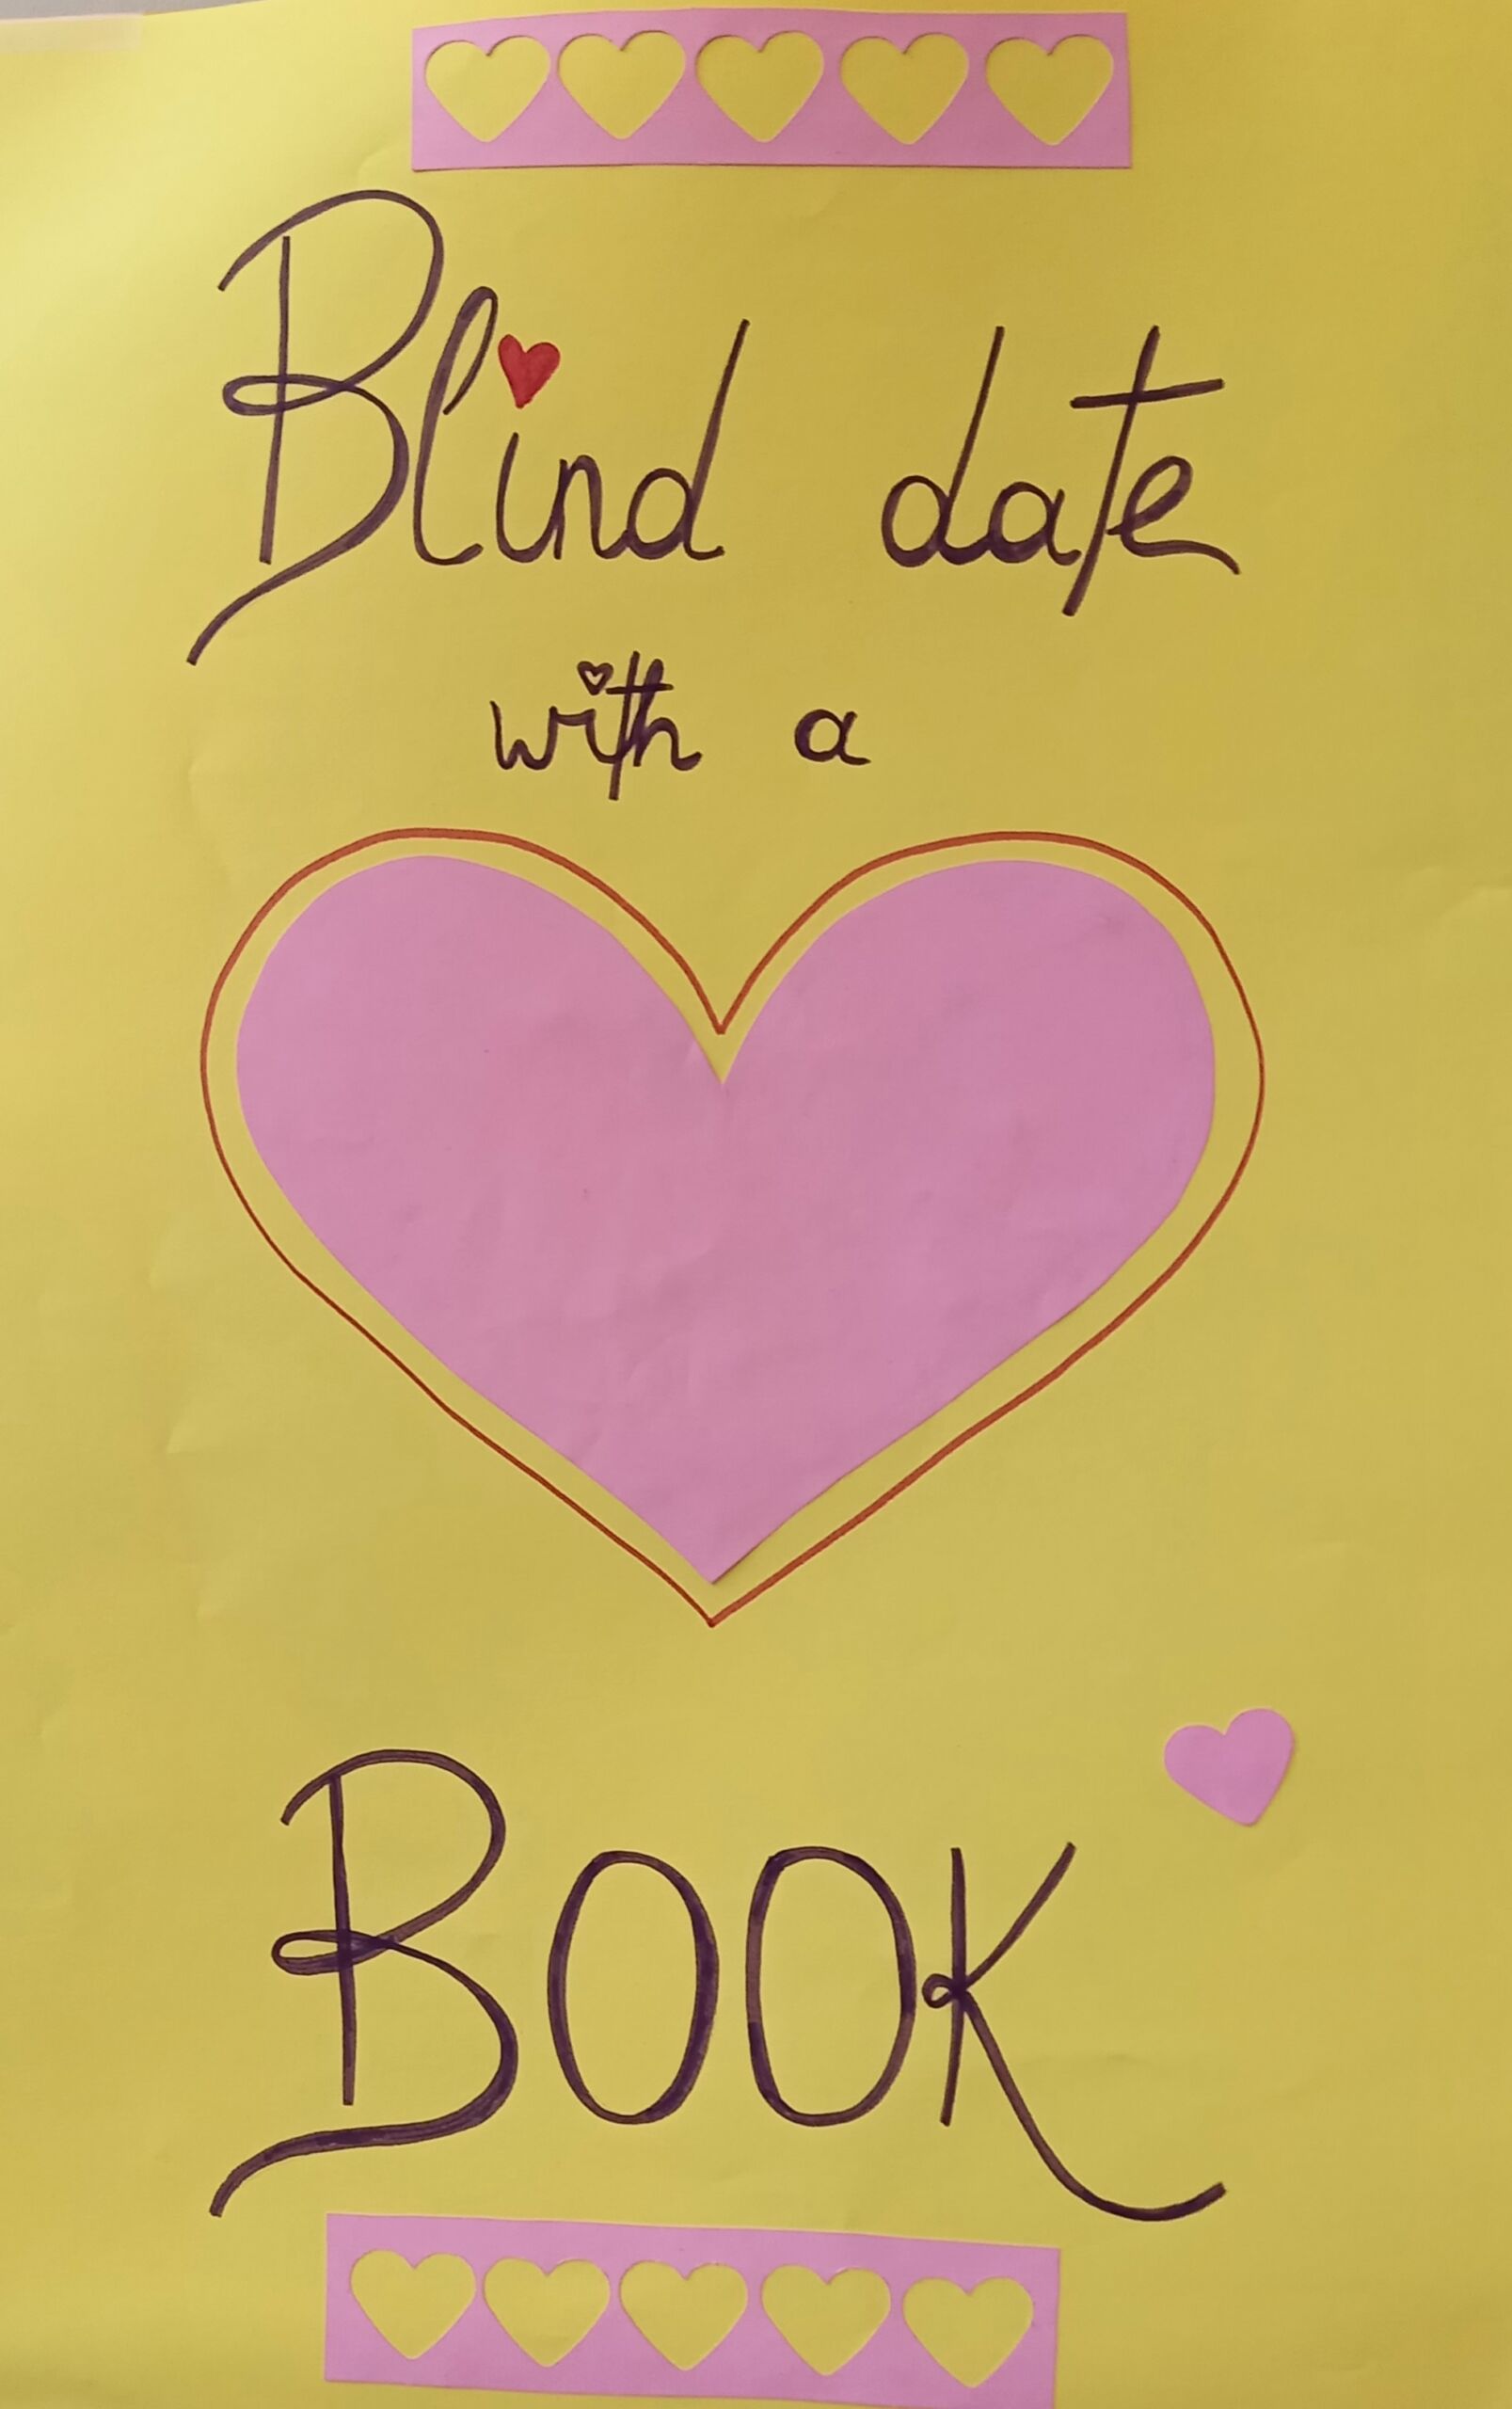 Blind date
with a
BOOK